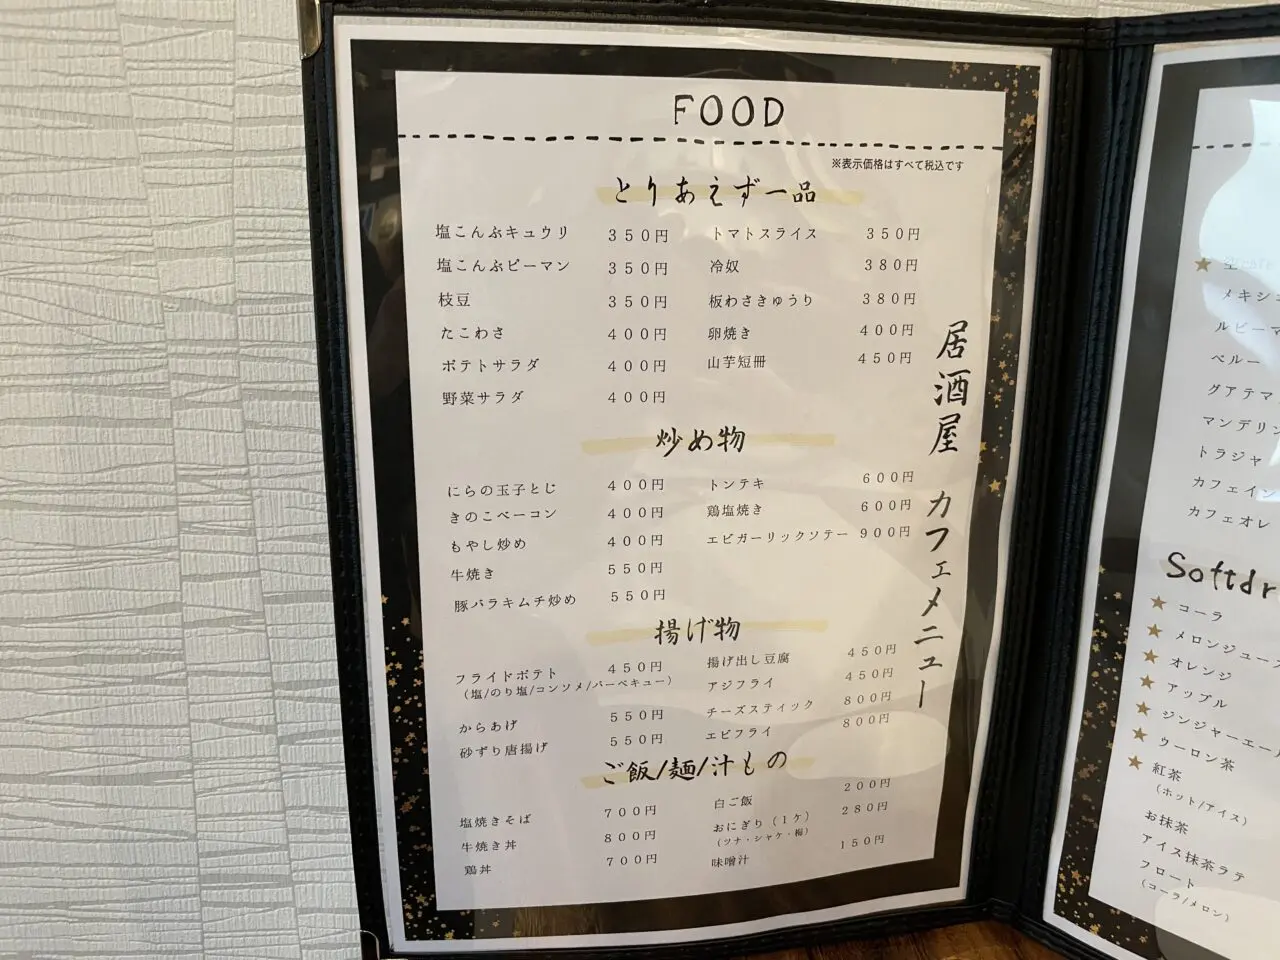 FOOD
※表示価格はすべて税込です
とりあえず一品
塩こんぶキュウリ 350円
塩こんぶピーマン 350円
枝豆 350円
たこわさ 400円
ポテトサラダ 400円
野菜サラダ 400円
トマトスライス 350円
冷奴 380円
板わさきゅうり 380円
卵焼き 400円
山芋短冊 450円
炒め物
にらの玉子とじ 400円
きのこベーコン 400円
もやし炒め 400円
牛焼き 550円
豚バラキムチ炒め 550円
トンテキ 600円
鶏塩焼き 600円
エビガーリックソテー 900円
揚げ物
フライドポテト 450円
(塩/のり塩/コンソメ/バーベキュー)
からあげ 550円
砂ずり唐揚げ 550円
揚げ出し豆腐 450円
アジフライ 450円
チーズスティック 800円
エビフライ 800円
ご飯/麺/汁もの
塩焼きそば 700円
牛焼き丼 800円
鶏丼 700円
白ご飯 200円
おにぎり(1ケ) 280円
(ツナ・シャケ・梅)
味噌汁 150円
居酒屋 カフェメニュー
メキシ
ルビーマ
ペルー
グアテマ
マンデリン
トラジャ
カフェイン
カフェオレ
Softdr
コーラ
メロンジュース
オレンジ
アップル
ジンジャーエール
ウーロン茶
紅茶
(ホット/アイス)
お抹茶
アイス抹茶ラテ
フロート
(コーラ/メロン)